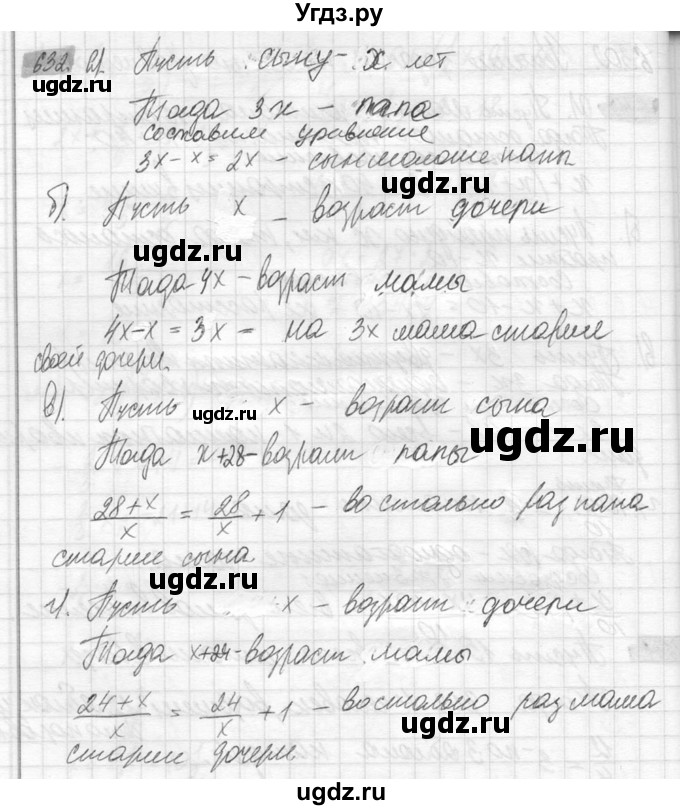 Угдз.ру
632. а). Пусть сыну - x лет
Тогда 3x – папа
составим уравнение
3x - x = 2x - сын моложе папы
ugdz.ru
б). Пусть x – возраст дочери
ugdz.ru
Тогда 4x - возраст мамы
4x - x = 3x - на 3x мама старше
своей дочери.
ugdz.ru
в). Пусть x - возраст сына
ugdz.ru
Тогда x+28 - возраст папы
28+x/x = 28/x + 1 - во столько раз папа
старше сына
ugdz.ru
г). Пусть x - возраст дочери
ugdz.ru
Тогда x+24 - возраст мамы
24+x/x = 24/x + 1 - во столько раз мама
ugdz.ru
старше дочери
ugdz.ru